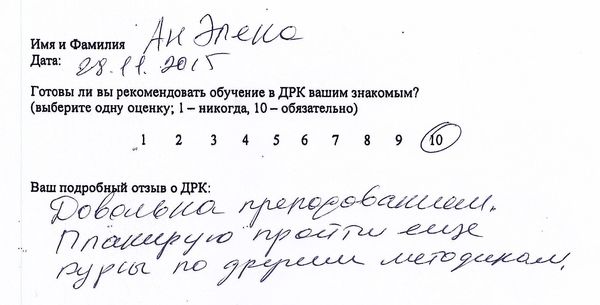 Имя и Фамилия Ан Элена
Дата: 28.11.2015
Готовы ли вы рекомендовать обучение в ДРК вашим знакомым?
(выберите одну оценку; 1 – никогда, 10 – обязательно)
1 2 3 4 5 6 7 8 9 10
Ваш подробный отзыв о ДРК:
Довольна преподованием.
Планирую пройти еще
курсы по другим методикам.